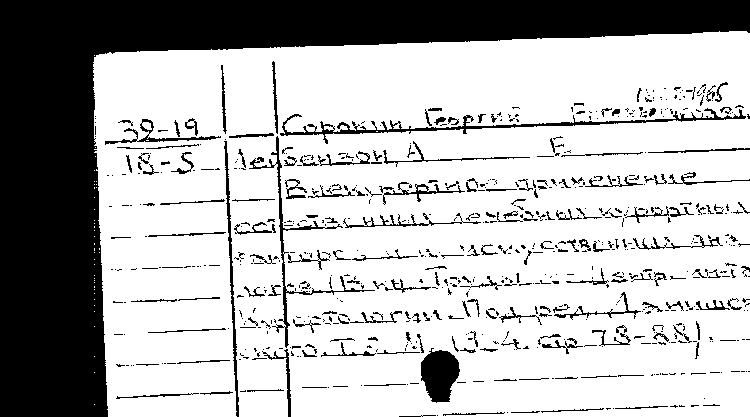 39-19
18-5
1965
Сорокин, Георгий
Лейбензон, А Е
Внекурортное применение
естественных лечебных курортных
факторов и их искусственных ана
логов. (В кн. Труды Центр. ин-та
Курортологии. Под ред. Данишев
ского. Т.5. М, 1934. стр 78-88).